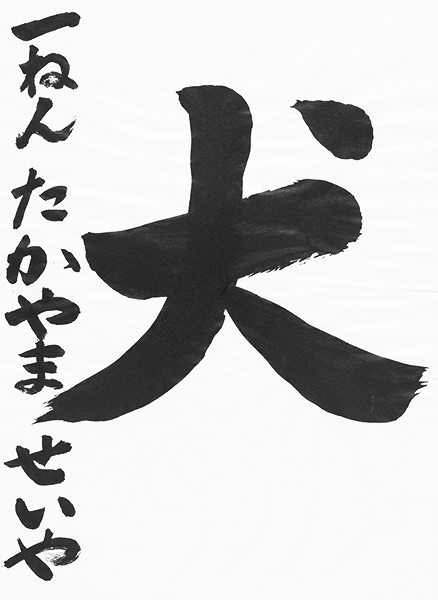 犬
一ねん たかやま せいや